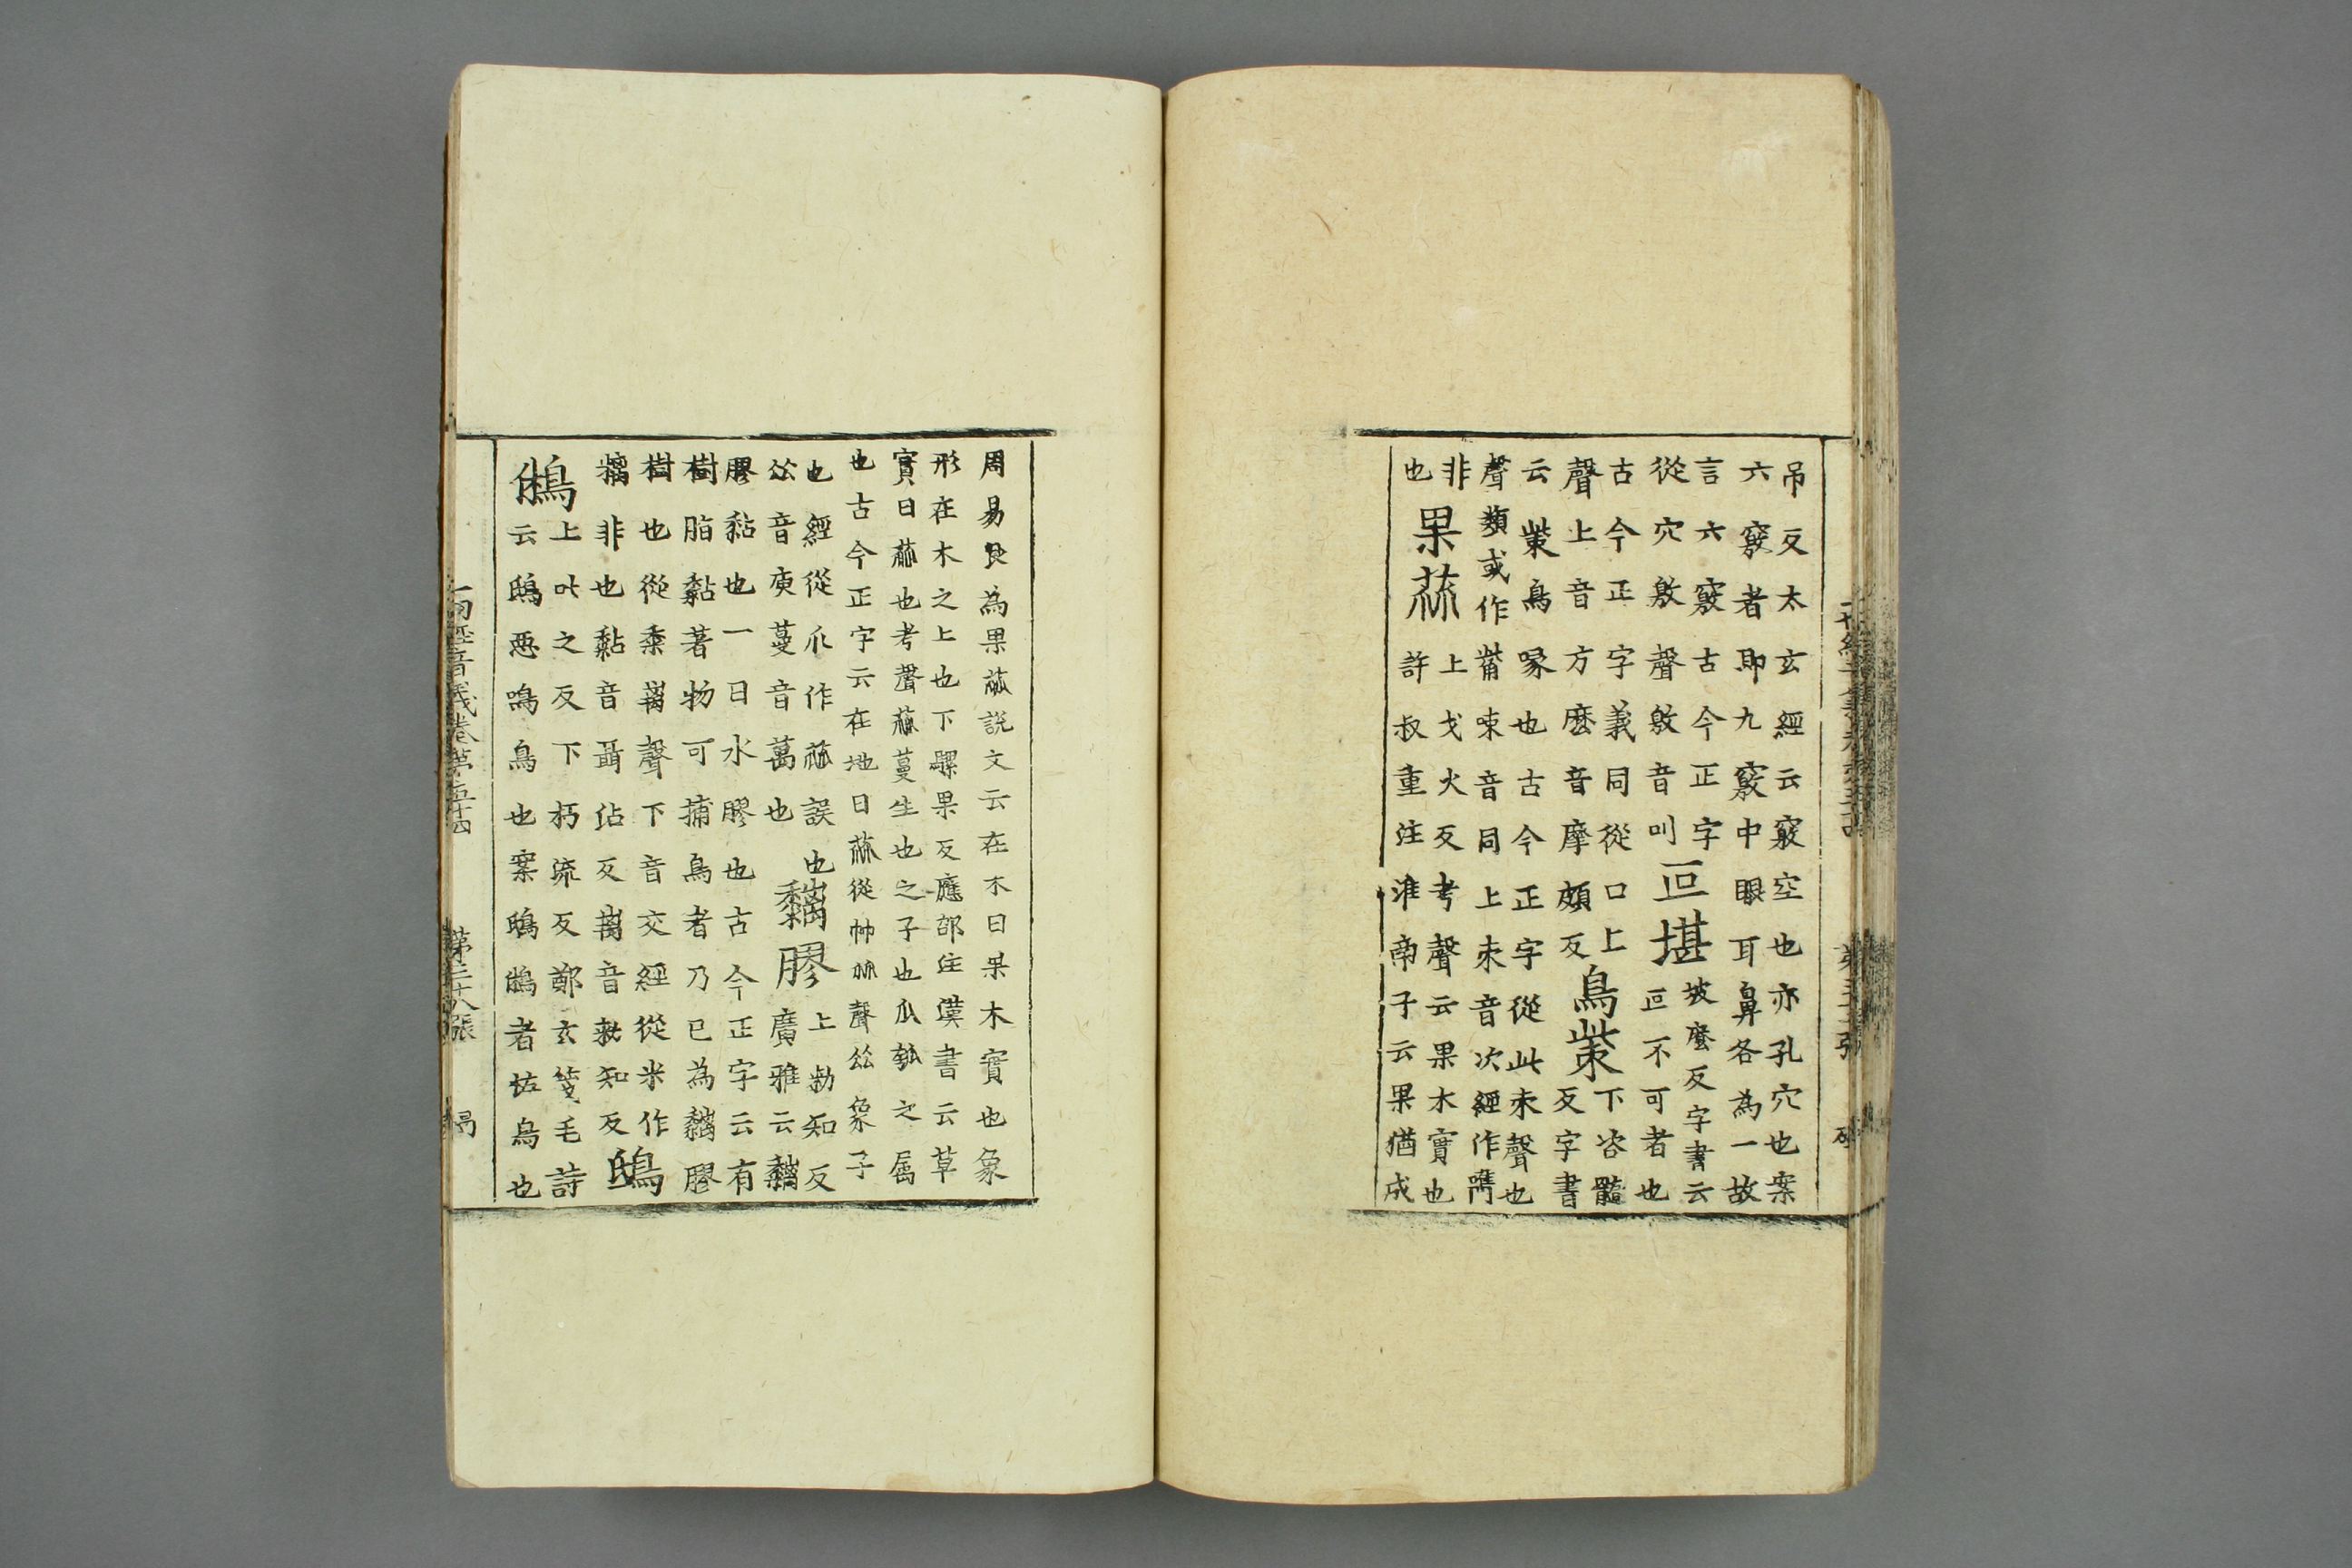 吊反太玄經云竅空也亦孔穴也案
六竅者即九竅中眼耳鼻各為一故
言六竅古今正字
從穴敫聲敫音叫
叵堪
坡麼反字書云
叵不可者也
古今正字義同從口上
聲上音方麽音摩頗反
鳥㭰
下咨髓
反字書
云㭰鳥喙也古今正字從此朿聲也
聲類或作觜㖩音同上朿音次經作嶲
非
也
果蓏
上戈火反考聲云果木實也
許叔重注淮南子云果猶成
周易艮為果蓏說文云在木曰果木實也象
形在木之上也下騾果反應邵注漢書云草
實曰蓏也考聲蓏蔓生也之子也瓜瓠之屬
也古今正字云在地曰蓏從艸㼌聲㼌象子
也經從爪作蓏誤也
㼌音庾蔓音萬也
黐膠
上勑知反
廣雅云黐
膠黏也一曰水膠也古今正字云有
樹脂黏著物可捕鳥者乃已為黐膠
樹也從黍离聲下音交經從米作
糯非也黏音聶佔反离音勑知反
鴟
鵂
上叱之反下朽流反鄭玄箋毛詩
云鴟惡鳴鳥也案鴟鵂者恠鳥也
一切經音義卷第五十四
第二十八張